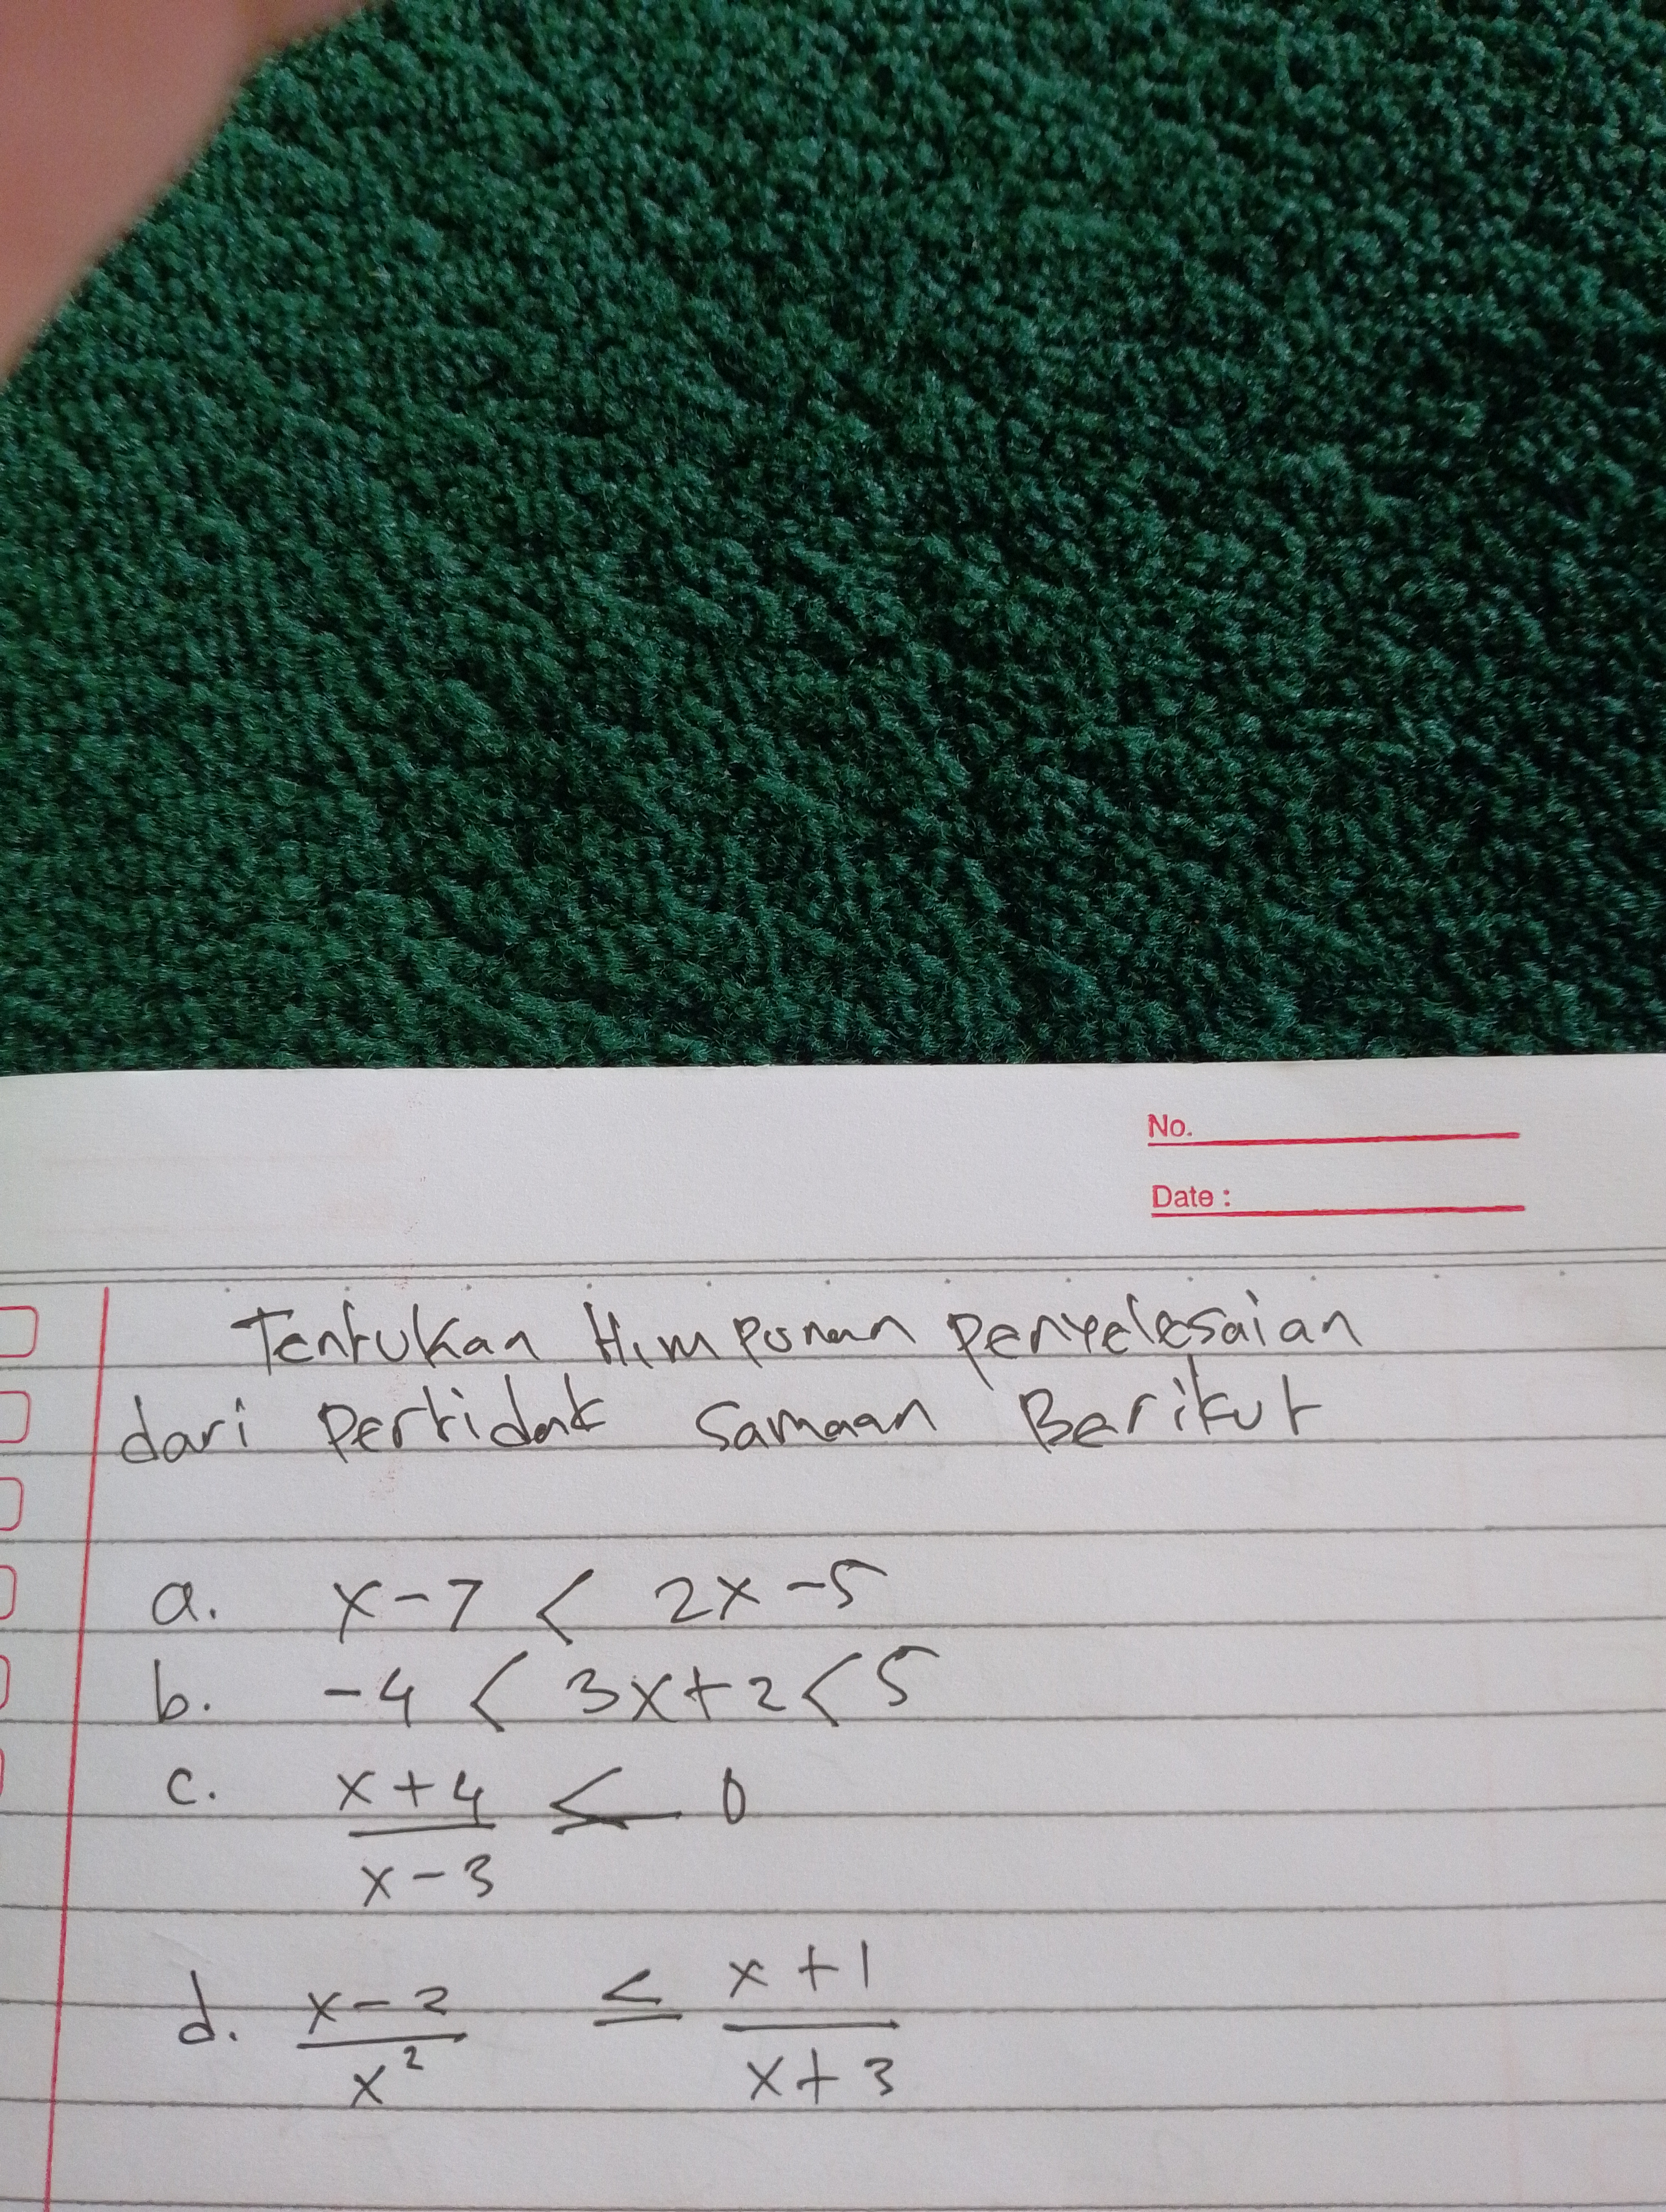 No.
Date :
Tentukan Himpunan penyelesaian
dari Pertidak samaan Berikut
a. x-7 < 2x-5
b. -4 < 3x+2 < 5
c. x+4 ≤ 0
x-3
d. x-2 ≤ x+1
x² x+3